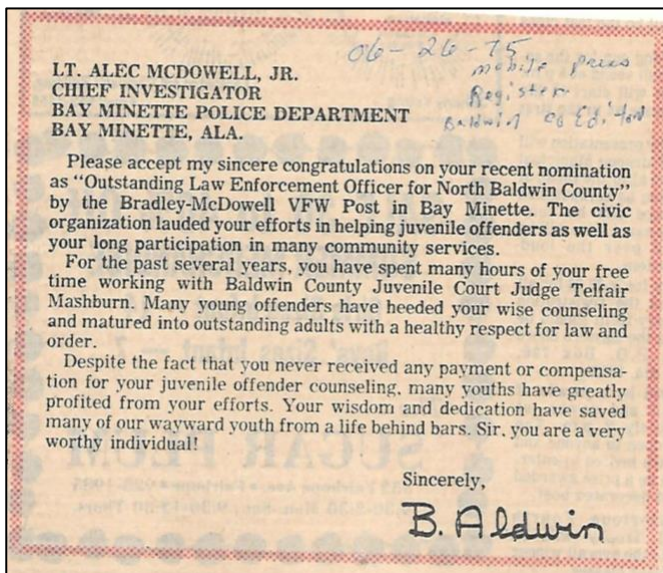 06-26-75
mobile press
Register
Baldwin Co Edition
LT. ALEC MCDOWELL, JR.
CHIEF INVESTIGATOR
BAY MINETTE POLICE DEPARTMENT
BAY MINETTE, ALA.
Please accept my sincere congratulations on your recent nomination
as "Outstanding Law Enforcement Officer for North Baldwin County"
by the Bradley-McDowell VFW Post in Bay Minette. The civic
organization lauded your efforts in helping juvenile offenders as well as
your long participation in many community services.
For the past several years, you have spent many hours of your free
time working with Baldwin County Juvenile Court Judge Telfair
Mashburn. Many young offenders have heeded your wise counseling
and matured into outstanding adults with a healthy respect for law and
order.
Despite the fact that you never received any payment or compensa-
tion for your juvenile offender counseling, many youths have greatly
profited from your efforts. Your wisdom and dedication have saved
many of our wayward youth from a life behind bars. Sir, you are a very
worthy individual!
Sincerely,
B. Aldwin